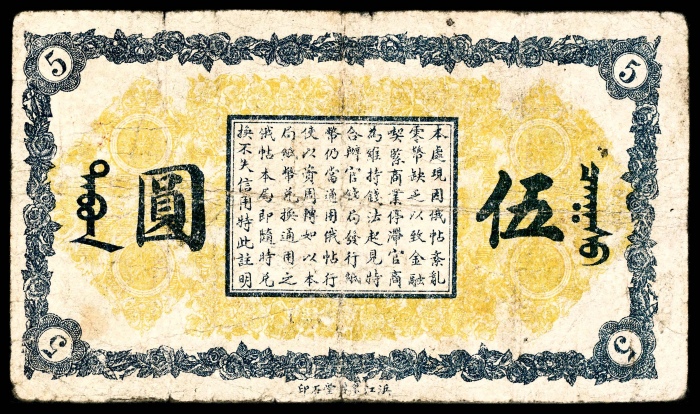 5
5
伍圓
本處現因俄帖紊亂
零幣缺乏以致金融
喫緊商業停滯官商
為維持錢法起見特
合辦官錢局發行紙
幣仍當通用俄帖行
使以資周轉如以本
局紙幣兌換通用之
俄帖本局即隨時兌
換不失信用特此註明
5
5
浜江堂石印